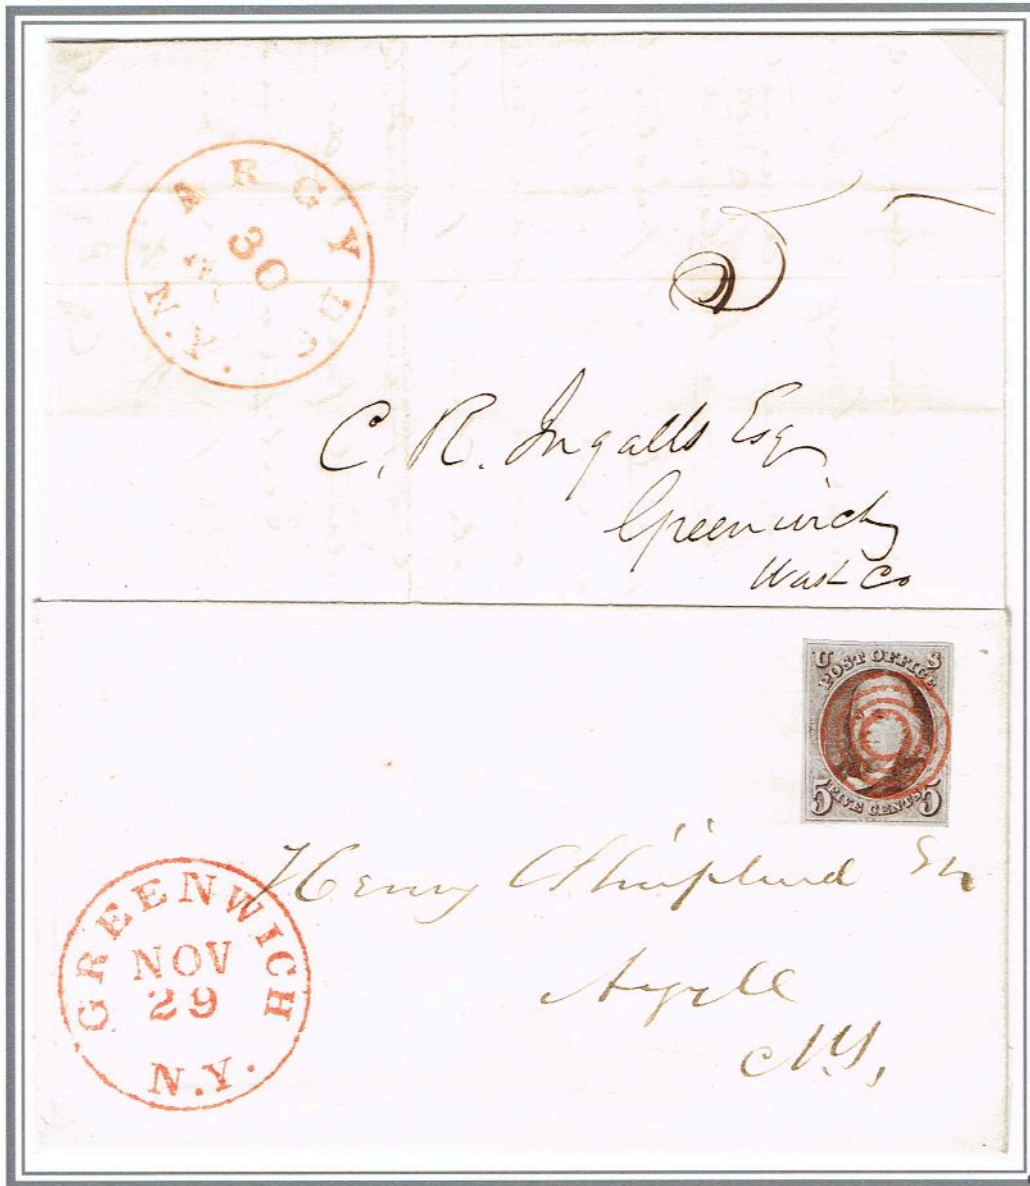 ARGYLE
30
N.Y.
5
C. R. Ingalls Esq
Greenwich
Wash Co
U S
POST OFFICE
5 FIVE CENTS 5
GREENWICH
NOV
29
N.Y.
Henry Shipherd Esq
Argyle
N.Y.